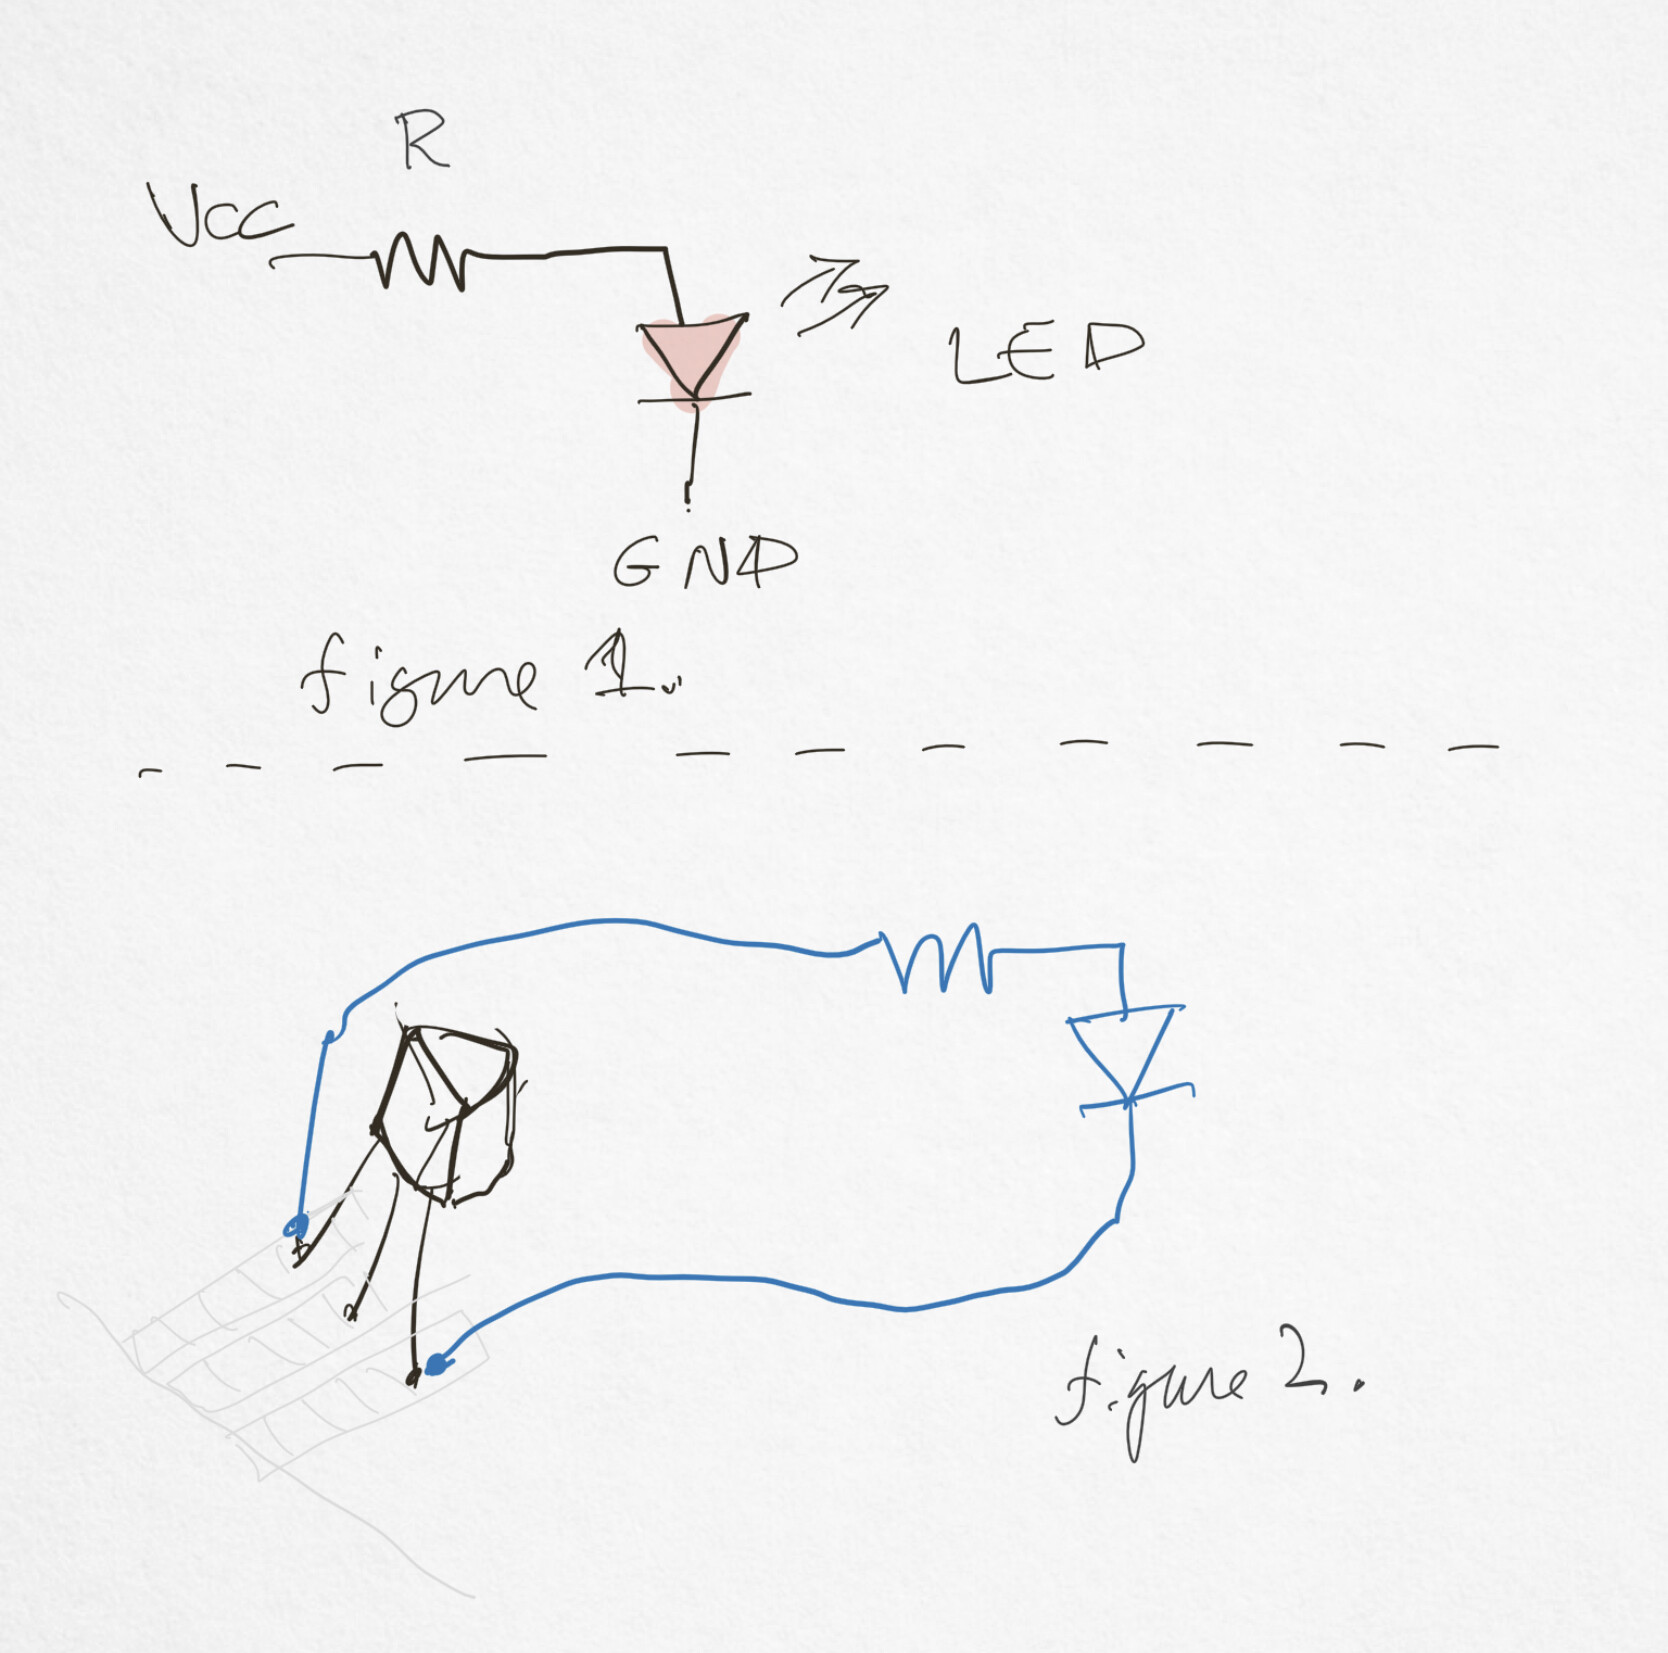 R
Vcc
LED
GND
figure 1.
figure 2.